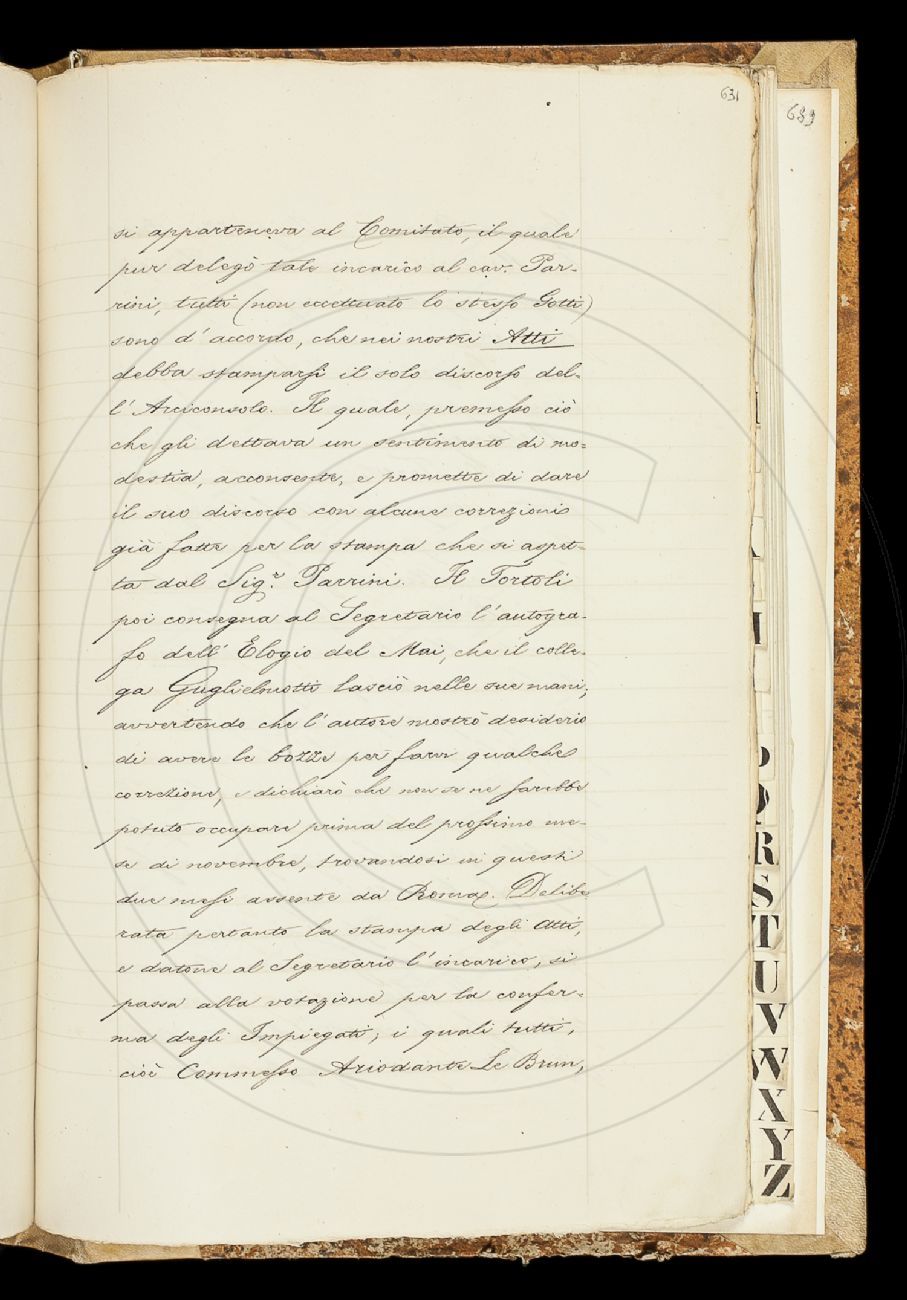 631
689
si apparteneva al Comitato, il quale
pur delegò tale incarico al cav. Par-
rini, tutti (non eccettuato lo stesso Gotti)
sono d'accordo, che nei nostri Atti
debba stamparsi il solo discorso del-
l'Arciconsolo. Il quale, premesso ciò
che gli dettava un sentimento di mo-
destia, acconsente, e promette di dare
il suo discorso con alcune correzioni
già fatte per la stampa che si aspet-
ta dal Sig.r Parrini. Il Tortoli
poi consegna al Segretario l'autogra-
fo dell'Elogio del Mai, che il colle-
ga Guglielmotti lasciò nelle sue mani,
avvertendo che l'autore mostrò desiderio
di avere le bozze per farvi qualche
correzione, e dichiarò che non se ne sarebbe
potuto occupare prima del prossimo me-
se di novembre, trovandosi in questi
due mesi assente da Roma. Delibe-
rata pertanto la stampa degli Atti,
e datone al Segretario l'incarico, si
passa alla votazione per la confer-
ma degli Impiegati; i quali tutti,
cioè Commesso Ariodante Le Brun,
R
S
T
U
V
W
X
Y
Z